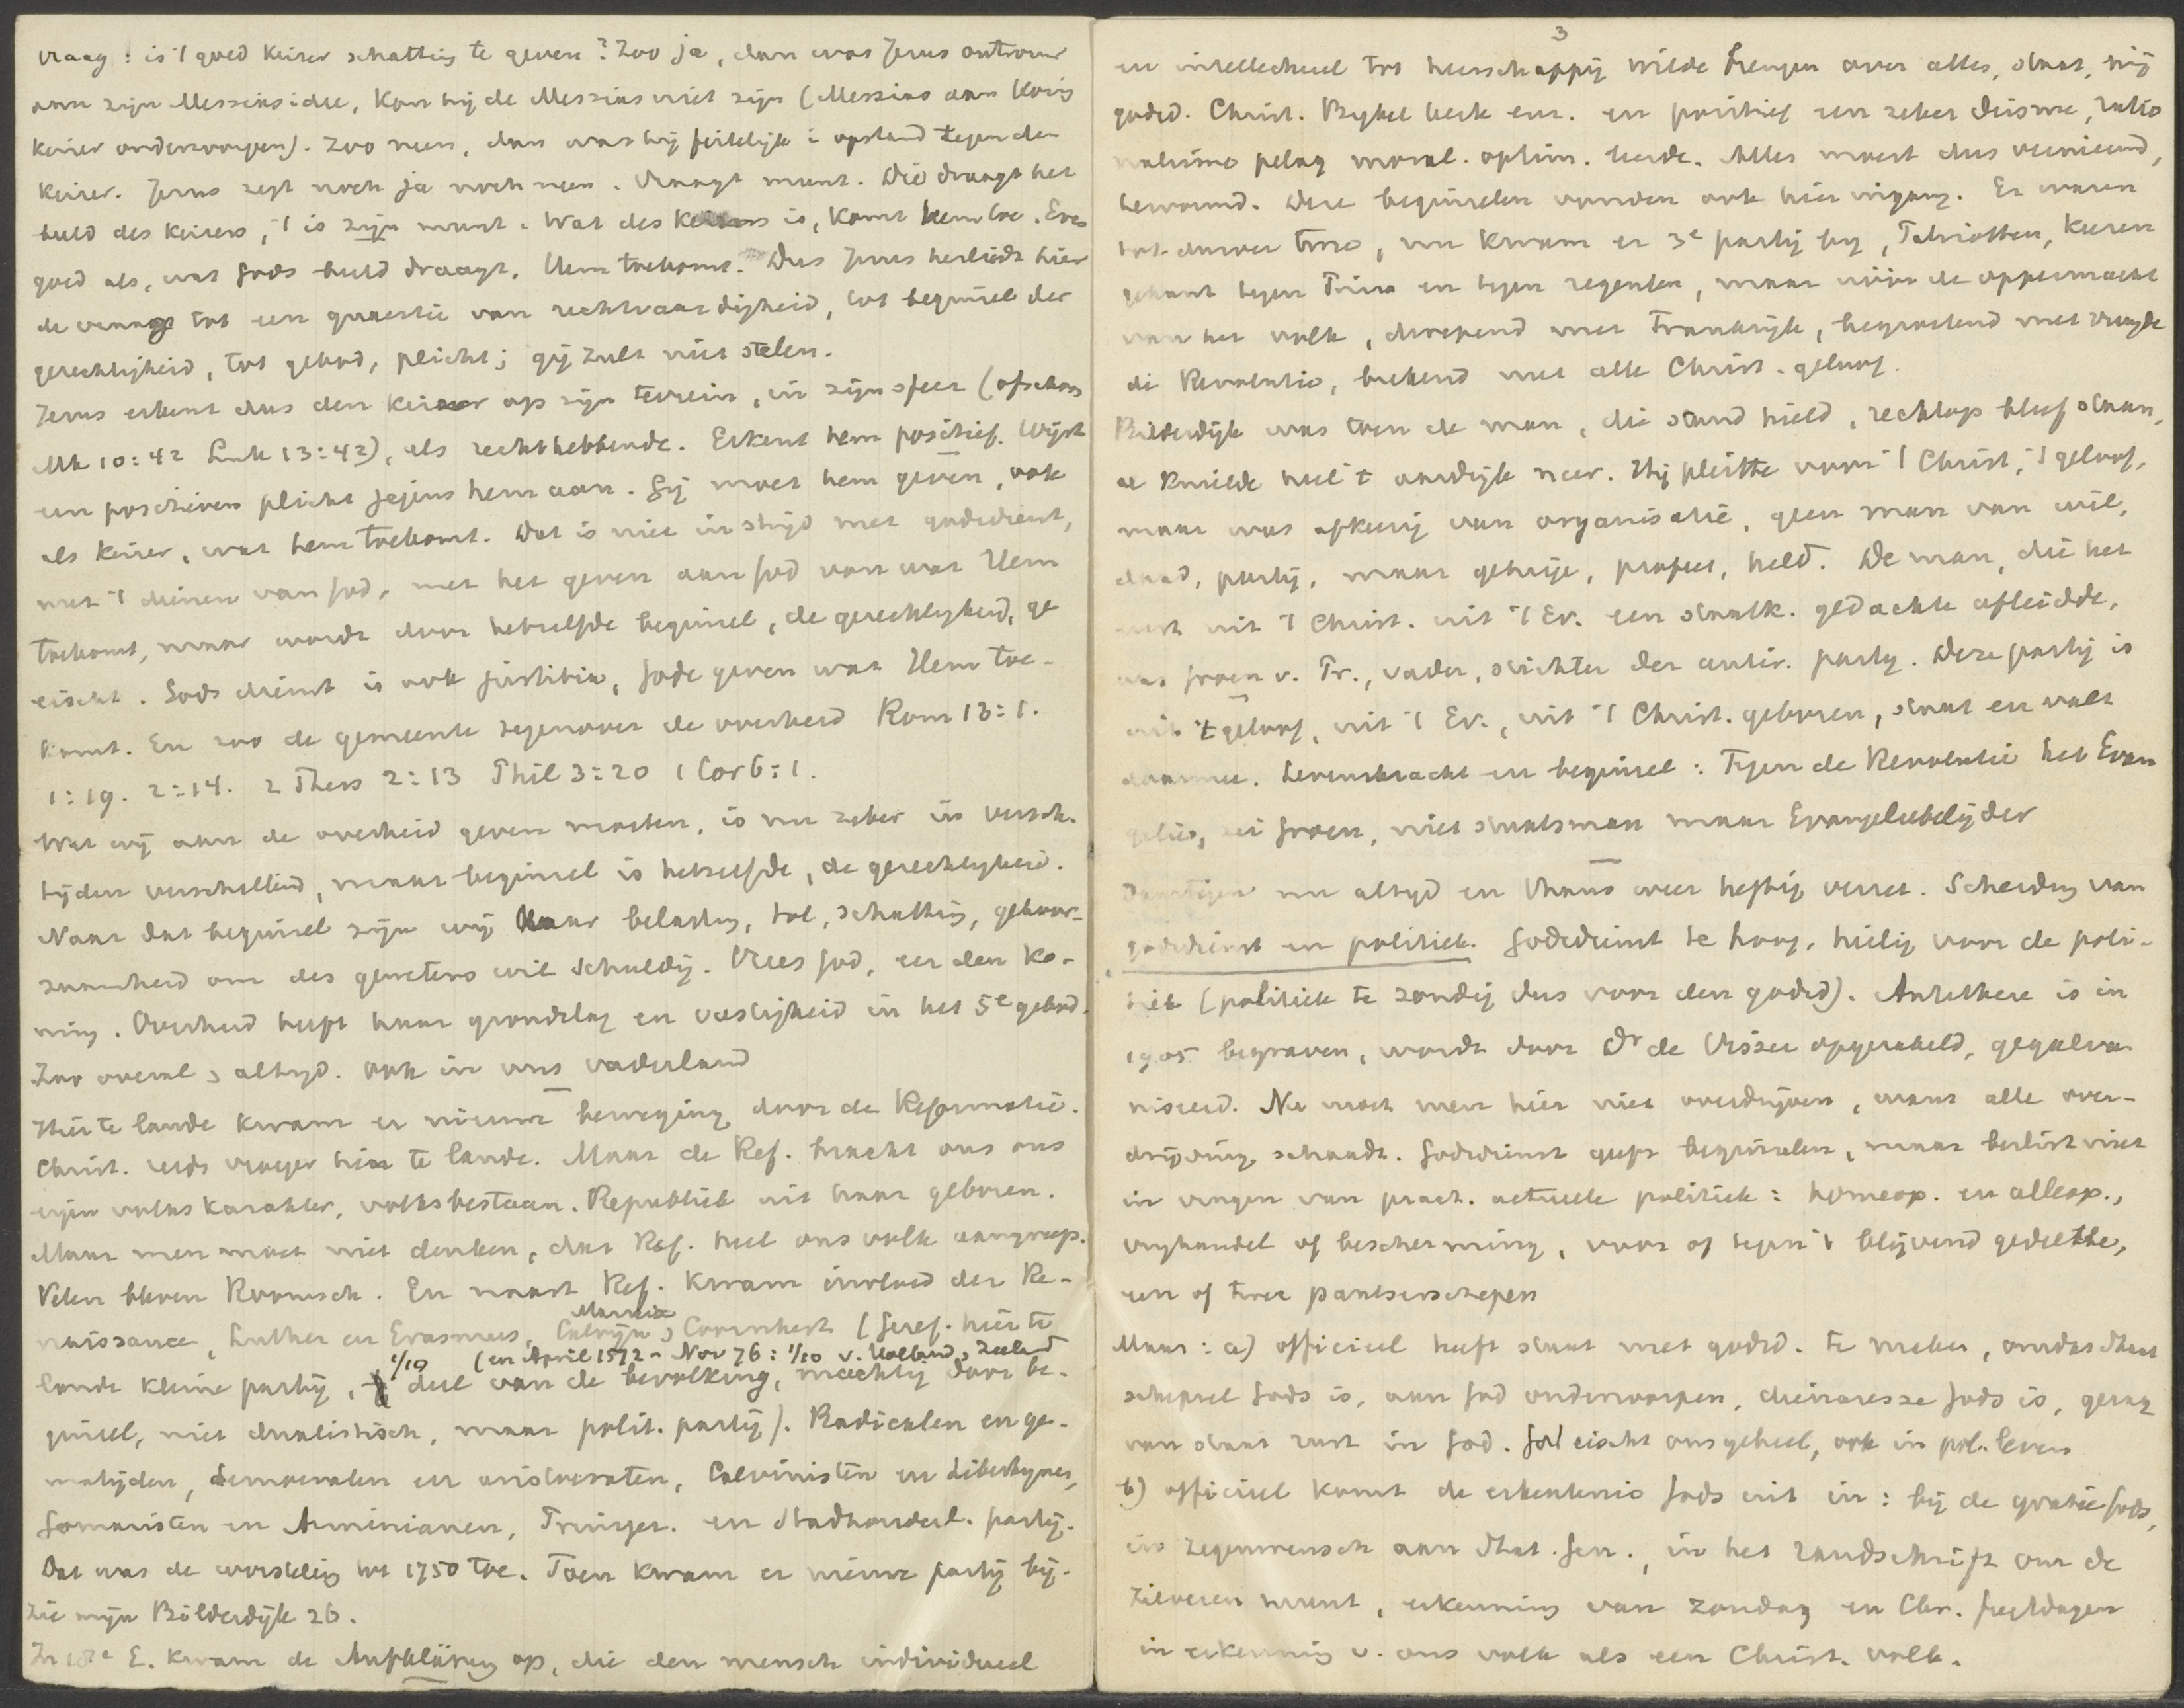 vraag: is 't goed keizer schatting te geven? Zoo ja, dan was Jezus ontrouw
aan zijn Messiasidee, kon hij de Messias niet zijn (Messias aan Kon.
keizer onderworpen). Zoo neen, dan was hij feitelijk i opstand tegen den
keizer. Jezus zegt noch ja noch neen. Vraagt munt. Die draagt het
beeld des keizers, 't is zijn munt. Wat des keizers is, komt hem toe. Even
goed als, wat Gods beeld draagt, Hem toekomt. Dus Jezus herleidt hier
de vraag tot een quaestie van rechtvaardigheid, tot beginsel der
gerechtigheid, tot gebod, plicht; gij zult niet stelen.
Jezus erkent dus den keizer op zijn terrein, in zijn sfeer (ofschoon
Mk 10:42 Luk 13:42), als rechthebbende. Erkent hem positief. Wijst
een positieven plicht jegens hem aan. Gij moet hem geven, ook
als keizer, wat hem toekomt. Dat is niet in strijd met godsdienst,
met 't dienen van God, met het geven aan God van wat Hem
toekomt, maar wordt door hetzelfde beginsel, de gerechtigheid, ge
eischt. Gods dienst is ook justitia, Gode geven wat Hem toe-
komt. En zoo de gemeente tegenover de overheid Rom 13:1.
1:19. 2:14. 2 Thess 2:13 Phil 3:20 1 Cor 6:1.
Wat wij aan de overheid geven moeten, is nu zeker in versch.
tijden verschillend, maar beginsel is hetzelfde, de gerechtigheid.
Naar dat beginsel zijn wij haar belasting, tol, schatting, gehoor-
zaamheid om des gewetens wil schuldig. Vrees God, eer den Ko-
ning. Overheid heeft haar grondslag en vastigheid in het 5e gebod.
Zoo overal, altijd. Ook in ons vaderland
Hier te lande kwam er nieuwe beweging door de Reformatie.
Christ. reeds vroeger hier te lande. Maar de Ref. bracht ons ons
eigen volkskarakter, volksbestaan. Republiek uit haar geboren.
Maar men moet niet denken, dat Ref. heel ons volk aangreep.
Velen bleven Roomsch. En naast Ref. kwam invloed der Re-
naissance, Luther en Erasmus, Calvijn, Marnix, Coornhert (Geref. hier te
(en April 1572 - Nov 76: 1/10 v. Holland, Zeeland
lande kleine partij, 1/10 deel van de bevolking, machtig door be-
ginsel, niet dualistisch, maar polit. partij). Radicalen en ge-
matigden, democraten en aristocraten, Calvinisten en Libertijnen,
Gomaristen en Arminianen, Prinsges. en Stadhouderl. partij.
Dat was de worsteling tot 1750 toe. Toen kwam er nieuwe partij bij.
Zie mijn Bilderdijk 26.
In 18e E. kwam de Aufklärung op, die den mensch individueel
3
en intellectueel tot heerschappij wilde brengen over alles, staat, mij
godsd. Christ. Bijbel kerk enz. en positief een zeker deisme, ratio
nalisme pelag moral. optim. leerde. Alles moest dus vernieuwd,
hervormd. Deze beginselen vonden ook hier ingang. Er waren
tot dusver twee, nu kwam er 3e partij bij, Patriotten, keeren
gekant tegen Prins en tegen regenten, maar vóór de oppermacht
van het volk, dwepend met Frankrijk, begroetend met vreugde
de Revolutie, brekend met alle Christ. geloof.
Bilderdijk was toen de man, die stand hield, rechtop bleef staan,
al knielde heel 't aardrijk neer. Hij pleitte voor 't Christ, 't geloof,
maar was afkeerig van organisatie, geen man van wil,
daad, partij, maar getuige, profeet, held. De man, die het
eerst uit 't Christ. uit 't Ev. een staatk. gedachte afleidde,
was Groen v. Pr., vader, stichter der antir. partij. Deze partij is
uit 't geloof, uit 't Ev., uit 't Christ. geboren, staat en valt
daarmee. Levenskracht en beginsel: Tegen de Revolutie het Evan
gelie, zei Groen, niet staatsman maar Evangeliebelijder
Daartegen nu altijd en thans weer heftig verzet. Scheiding van
godsdienst en politiek. Godsdienst te hoog, heilig voor de poli-
tiek (politiek te zondig dus voor den godsd). Antithese is in
1905 begraven, wordt door Dr de Visser opgerakeld, gegalva
niseerd. Nu moet men hier niet overdrijven, want alle over-
drijving schaadt. Godsdienst geeft beginselen, maar beslist niet
in vragen van pract. actueele politiek: homeop. en alleop.,
vrijhandel of bescherming, voor of tegen 't blijvend gedeelte,
een of twee pantserschepen
Maar: a) officieel heeft staat met godsd. te maken, omdat Staat
schepsel Gods is, aan God onderworpen, dienaresse Gods is, gezag
van staat rust in God. God eischt ons geheel, ook in pol. leven
b) officieel komt de erkentenis Gods uit in: bij de gratie Gods,
in zegenwensch aan Stat. Gen., in het randschrift om de
zilveren munt, erkenning van zondag en Chr. feestdagen
in erkenning v. ons volk als een Christ. volk.